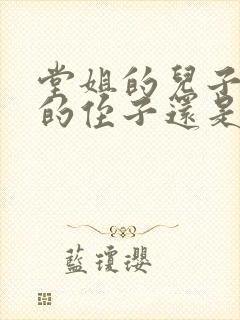 堂姐的兒子
的侄子還是
藍瓊瓔